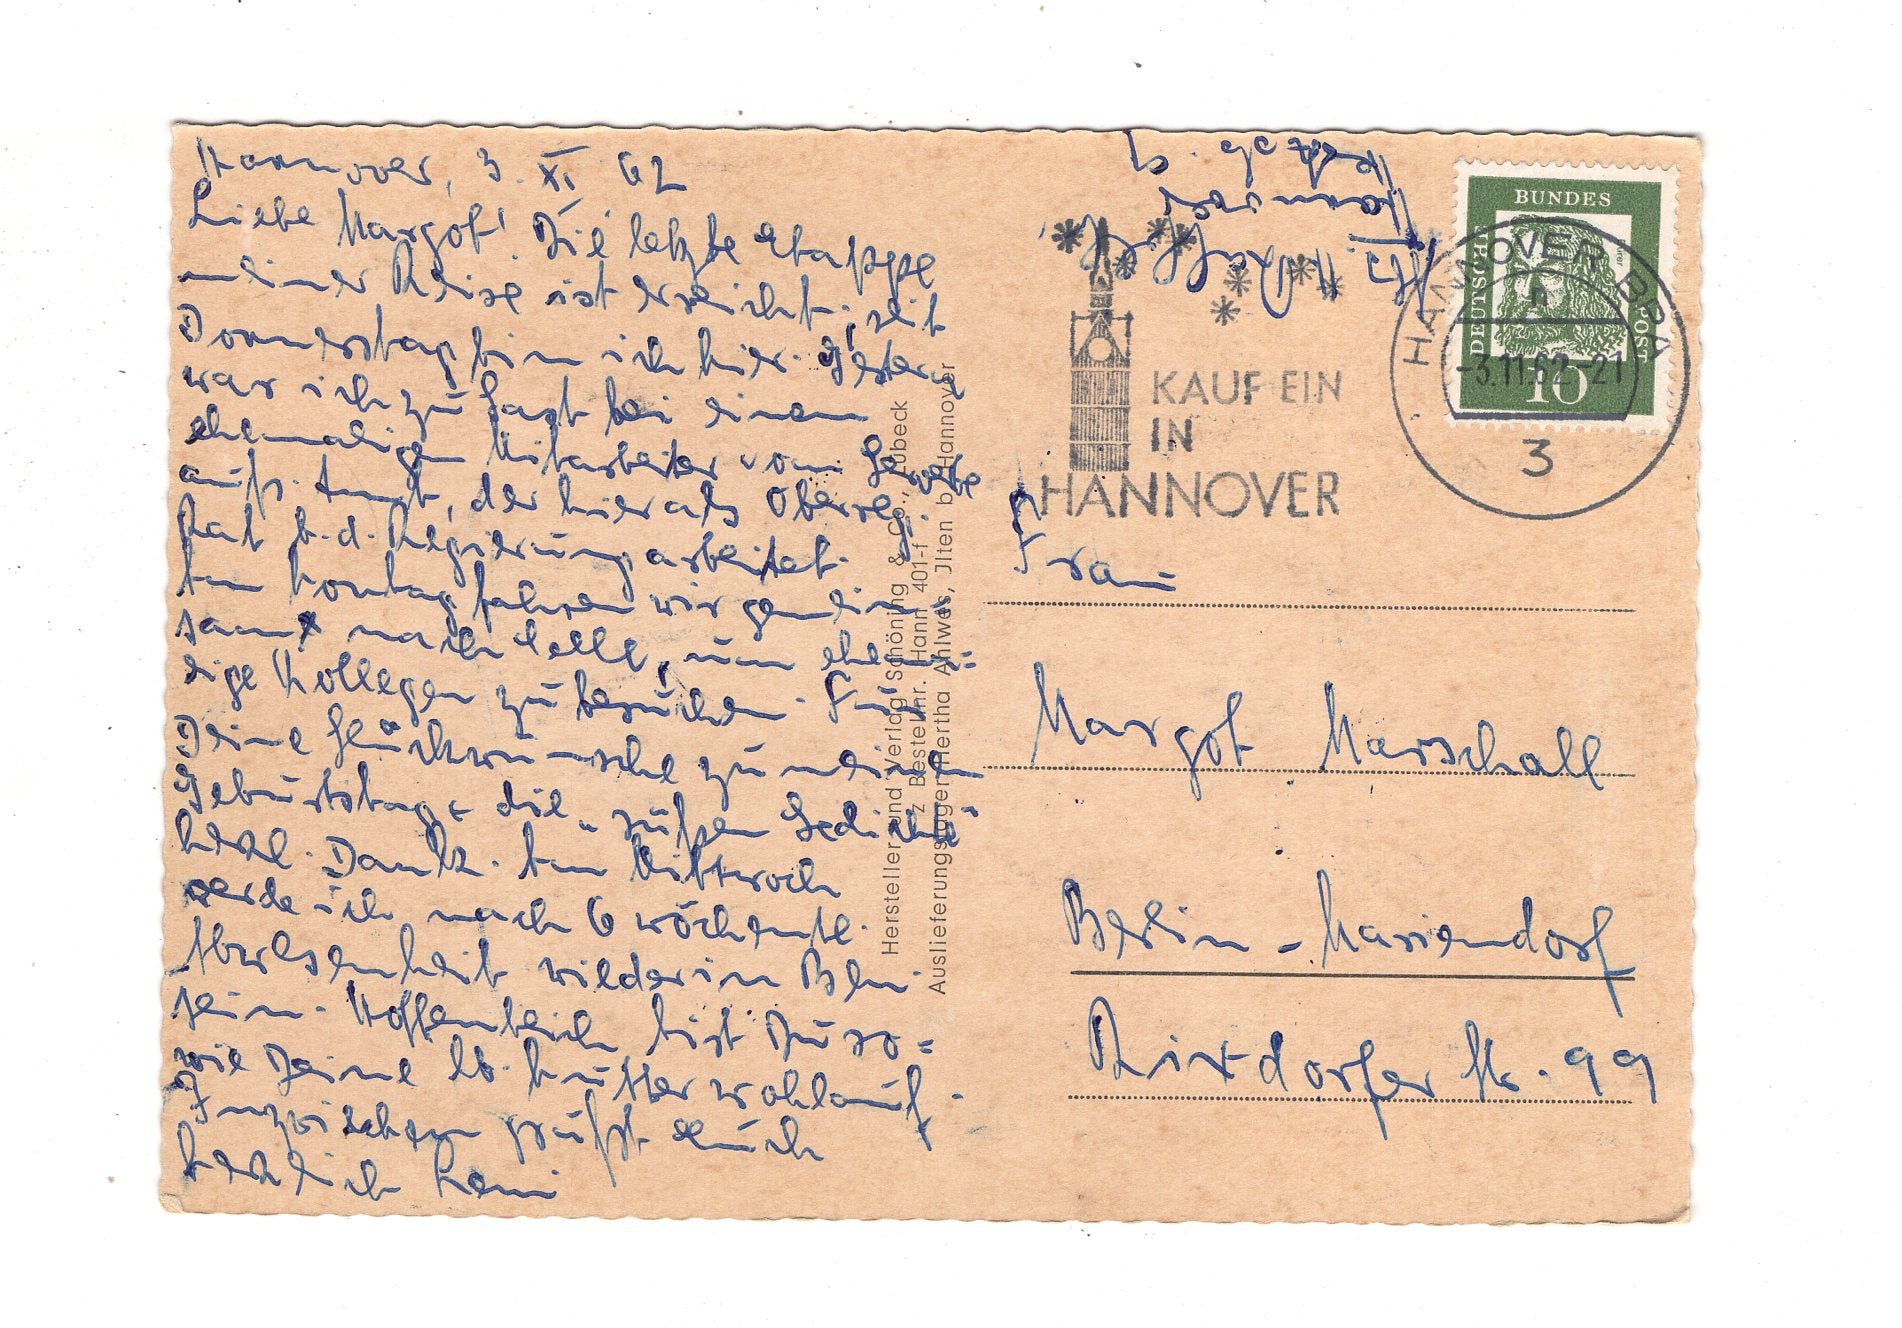 Hannover, 3. XI. 62
Liebe Margot! Die letzte Etappe
meiner Reise ist erreicht; seit
Donnerstag bin ich hier. Gestern
war ich zu Gast bei einem
ehemaligen Mitarbeiter vom Gewerbe
aufs. Amt, der hier als Oberreg.
Rat b. d. Regierung arbeitet.
Am Montag fahren wir gemein-
sam nach Celle, um ehema-
lige Kollegen zu besuchen. Für
Deine Glückwünsche zu meinem
Geburtstag die „süßen Gedichte"
herzl. Dank. Am Mittwoch
werde ich nach 6 wöchentl.
Abwesenheit wieder in Bln
sein. Hoffentlich bist Du so=
wie Deine lb. Mutter wohlauf.
Inzwischen grüßt Euch
herzlich
Hersteller und Verlag Schöning & Co., Lübeck
Bestellnr. Hann 401-f
Auslieferungslager: Hertha Ahlwes, Jlten b. Hannover
Hannover
BUNDES
DEUTSCHE
POST
10
HANNOVER BPA
-3.11.62-21
h
3
KAUF EIN
IN
HANNOVER
Frau
Margot Marschall
Berlin-Mariendorf
Rixdorfer Str. 99